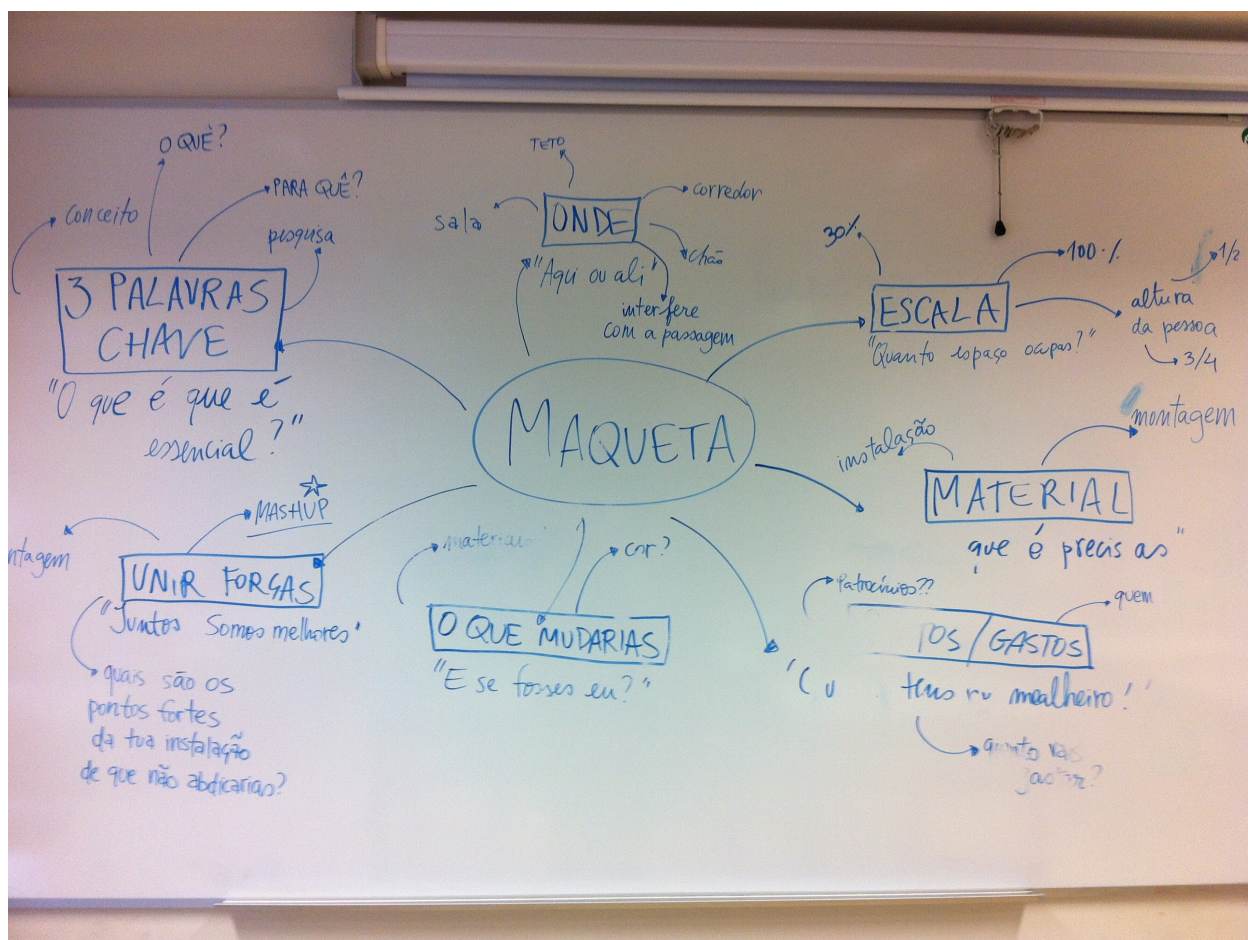 O QUÊ?
conceito
PARA QUÊ?
pesquisa
3 PALAVRAS
CHAVE
"O que é que é
essencial?"
TETO
sala
corredor
ONDE
chão
"Aqui ou ali"
interfere
com a passagem
30%
100%
1/2
ESCALA
altura
da pessoa
3/4
"Quanto espaço ocupas?"
MAQUETA
instalação
montagem
MATERIAL
que é precis as"
MASHUP
ntagem
UNIR FORÇAS
"Juntos somos melhores"
quais são os
pontos fortes
da tua instalação
de que não abdicarias?
materiais
cor?
O QUE MUDARIAS
"E se fosses eu?"
Patrocínios??
quem
TOS/GASTOS
tens mealheiro!"
quanto vais
gastar?